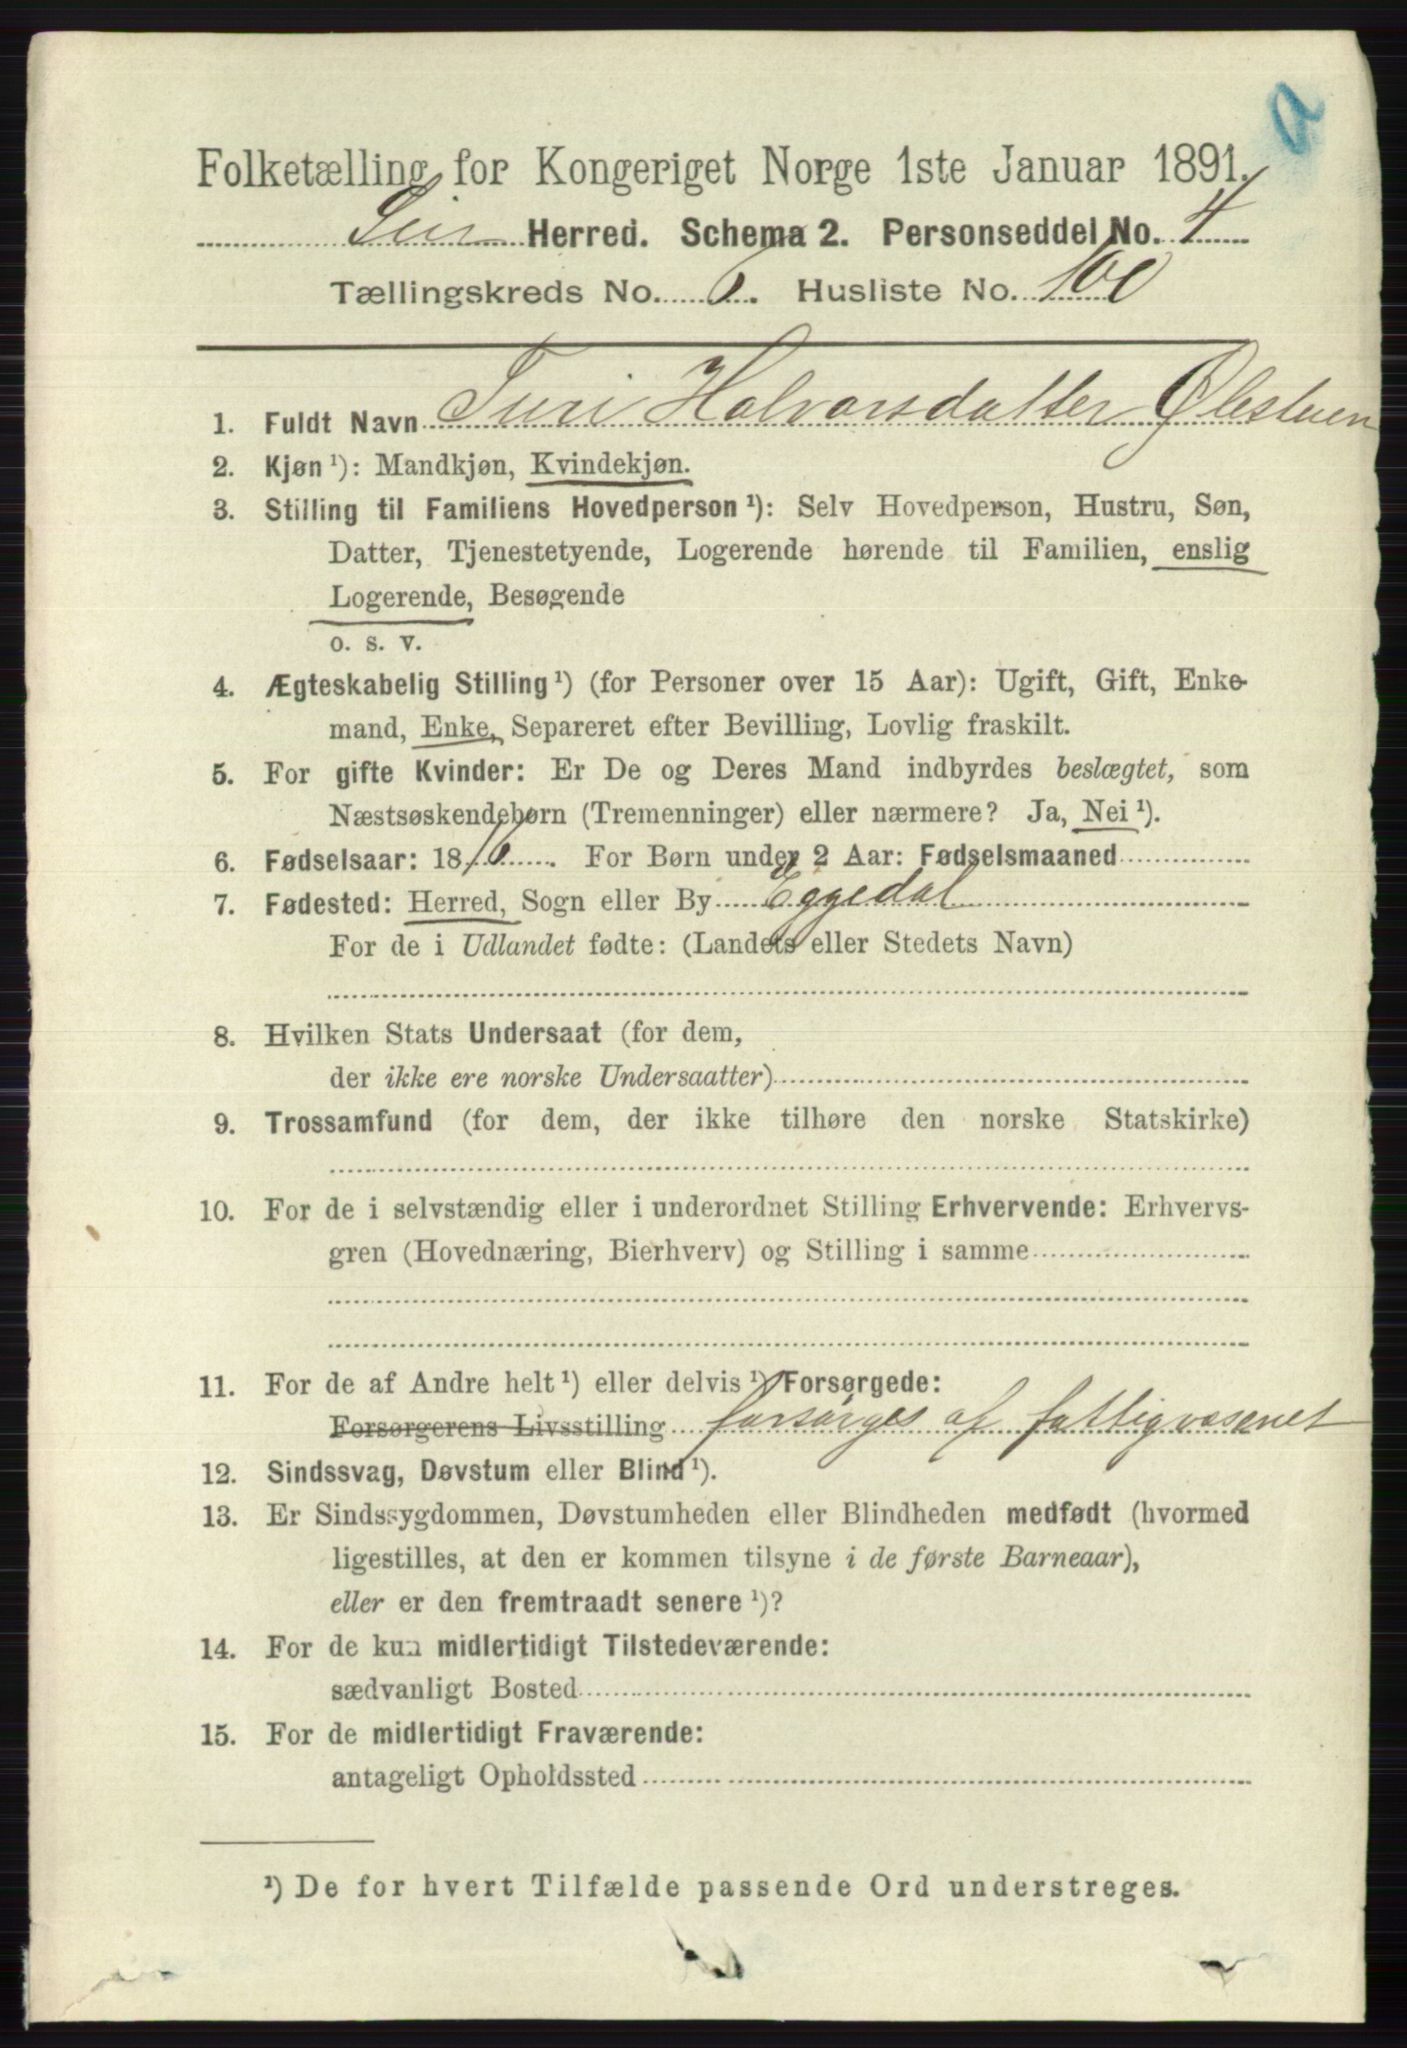 Folketælling for Kongeriget Norge 1ste Januar 1891.
Lier Herred. Schema 2. Personseddel No. 4
Tællingskreds No. 6. Husliste No. 100
1. Fuldt Navn Turi Halvorsdatter Ølestuen
2. Kjøn ¹): Mandkjøn, Kvindekjøn.
3. Stilling til Familiens Hovedperson ¹): Selv Hovedperson, Hustru, Søn,
Datter, Tjenestetyende, Logerende hørende til Familien, enslig
Logerende, Besøgende
o. s. v.
4. Ægteskabelig Stilling ¹) (for Personer over 15 Aar): Ugift, Gift, Enke-
mand, Enke, Separeret efter Bevilling, Lovlig fraskilt.
5. For gifte Kvinder: Er De og Deres Mand indbyrdes beslægtet, som
Næstsøskendebørn (Tremenninger) eller nærmere? Ja, Nei ¹).
6. Fødselsaar: 1816. For Børn under 2 Aar: Fødselsmaaned
7. Fødested: Herred, Sogn eller By Eggedal
For de i Udlandet fødte: (Landets eller Stedets Navn)
8. Hvilken Stats Undersaat (for dem,
der ikke ere norske Undersaatter)
9. Trossamfund (for dem, der ikke tilhøre den norske Statskirke)
10. For de i selvstændig eller i underordnet Stilling Erhvervende: Erhvervs-
gren (Hovednæring, Bierhverv) og Stilling i samme
11. For de af Andre helt ¹) eller delvis ¹) Forsørgede:
Forsørgerens Livsstilling forsørges af fattigvæsenet
12. Sindssvag, Døvstum eller Blind ¹).
13. Er Sindssygdommen, Døvstumheden eller Blindheden medfødt (hvormed
ligestilles, at den er kommen tilsyne i de første Barneaar),
eller er den fremtraadt senere ¹)?
14. For de kun midlertidigt Tilstedeværende:
sædvanligt Bosted
15. For de midlertidigt Fraværende:
antageligt Opholdssted
¹) De for hvert Tilfælde passende Ord understreges.